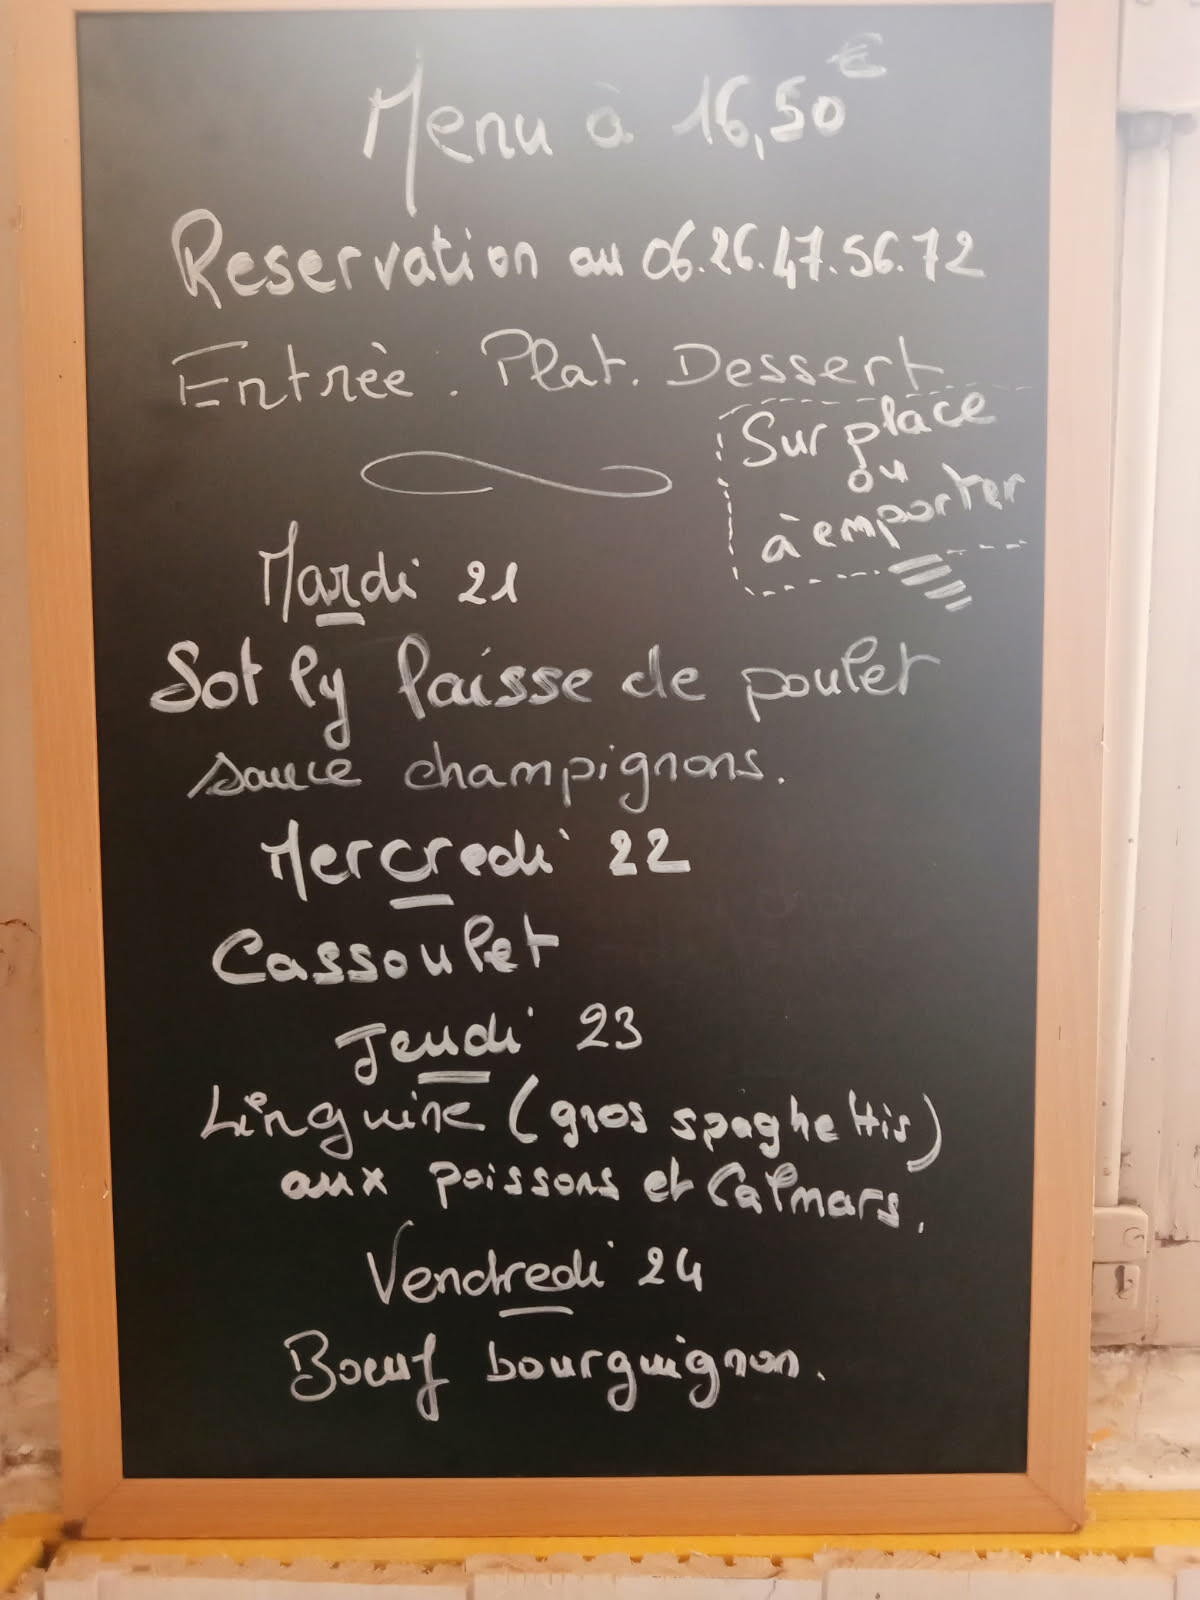 Menu à 16,50€
Reservation au 06.26.47.56.72
Entrèe. Plat. Dessert
Sur place
ou
à emporter
Mardi 21
Sot ly laisse de poulet
sauce champignons.
Mercredi 22
Cassoulet
Jeudi 23
Linguine (gros spaghettis)
aux poissons et Calmars.
Vendredi 24
Boeuf bourguignon.